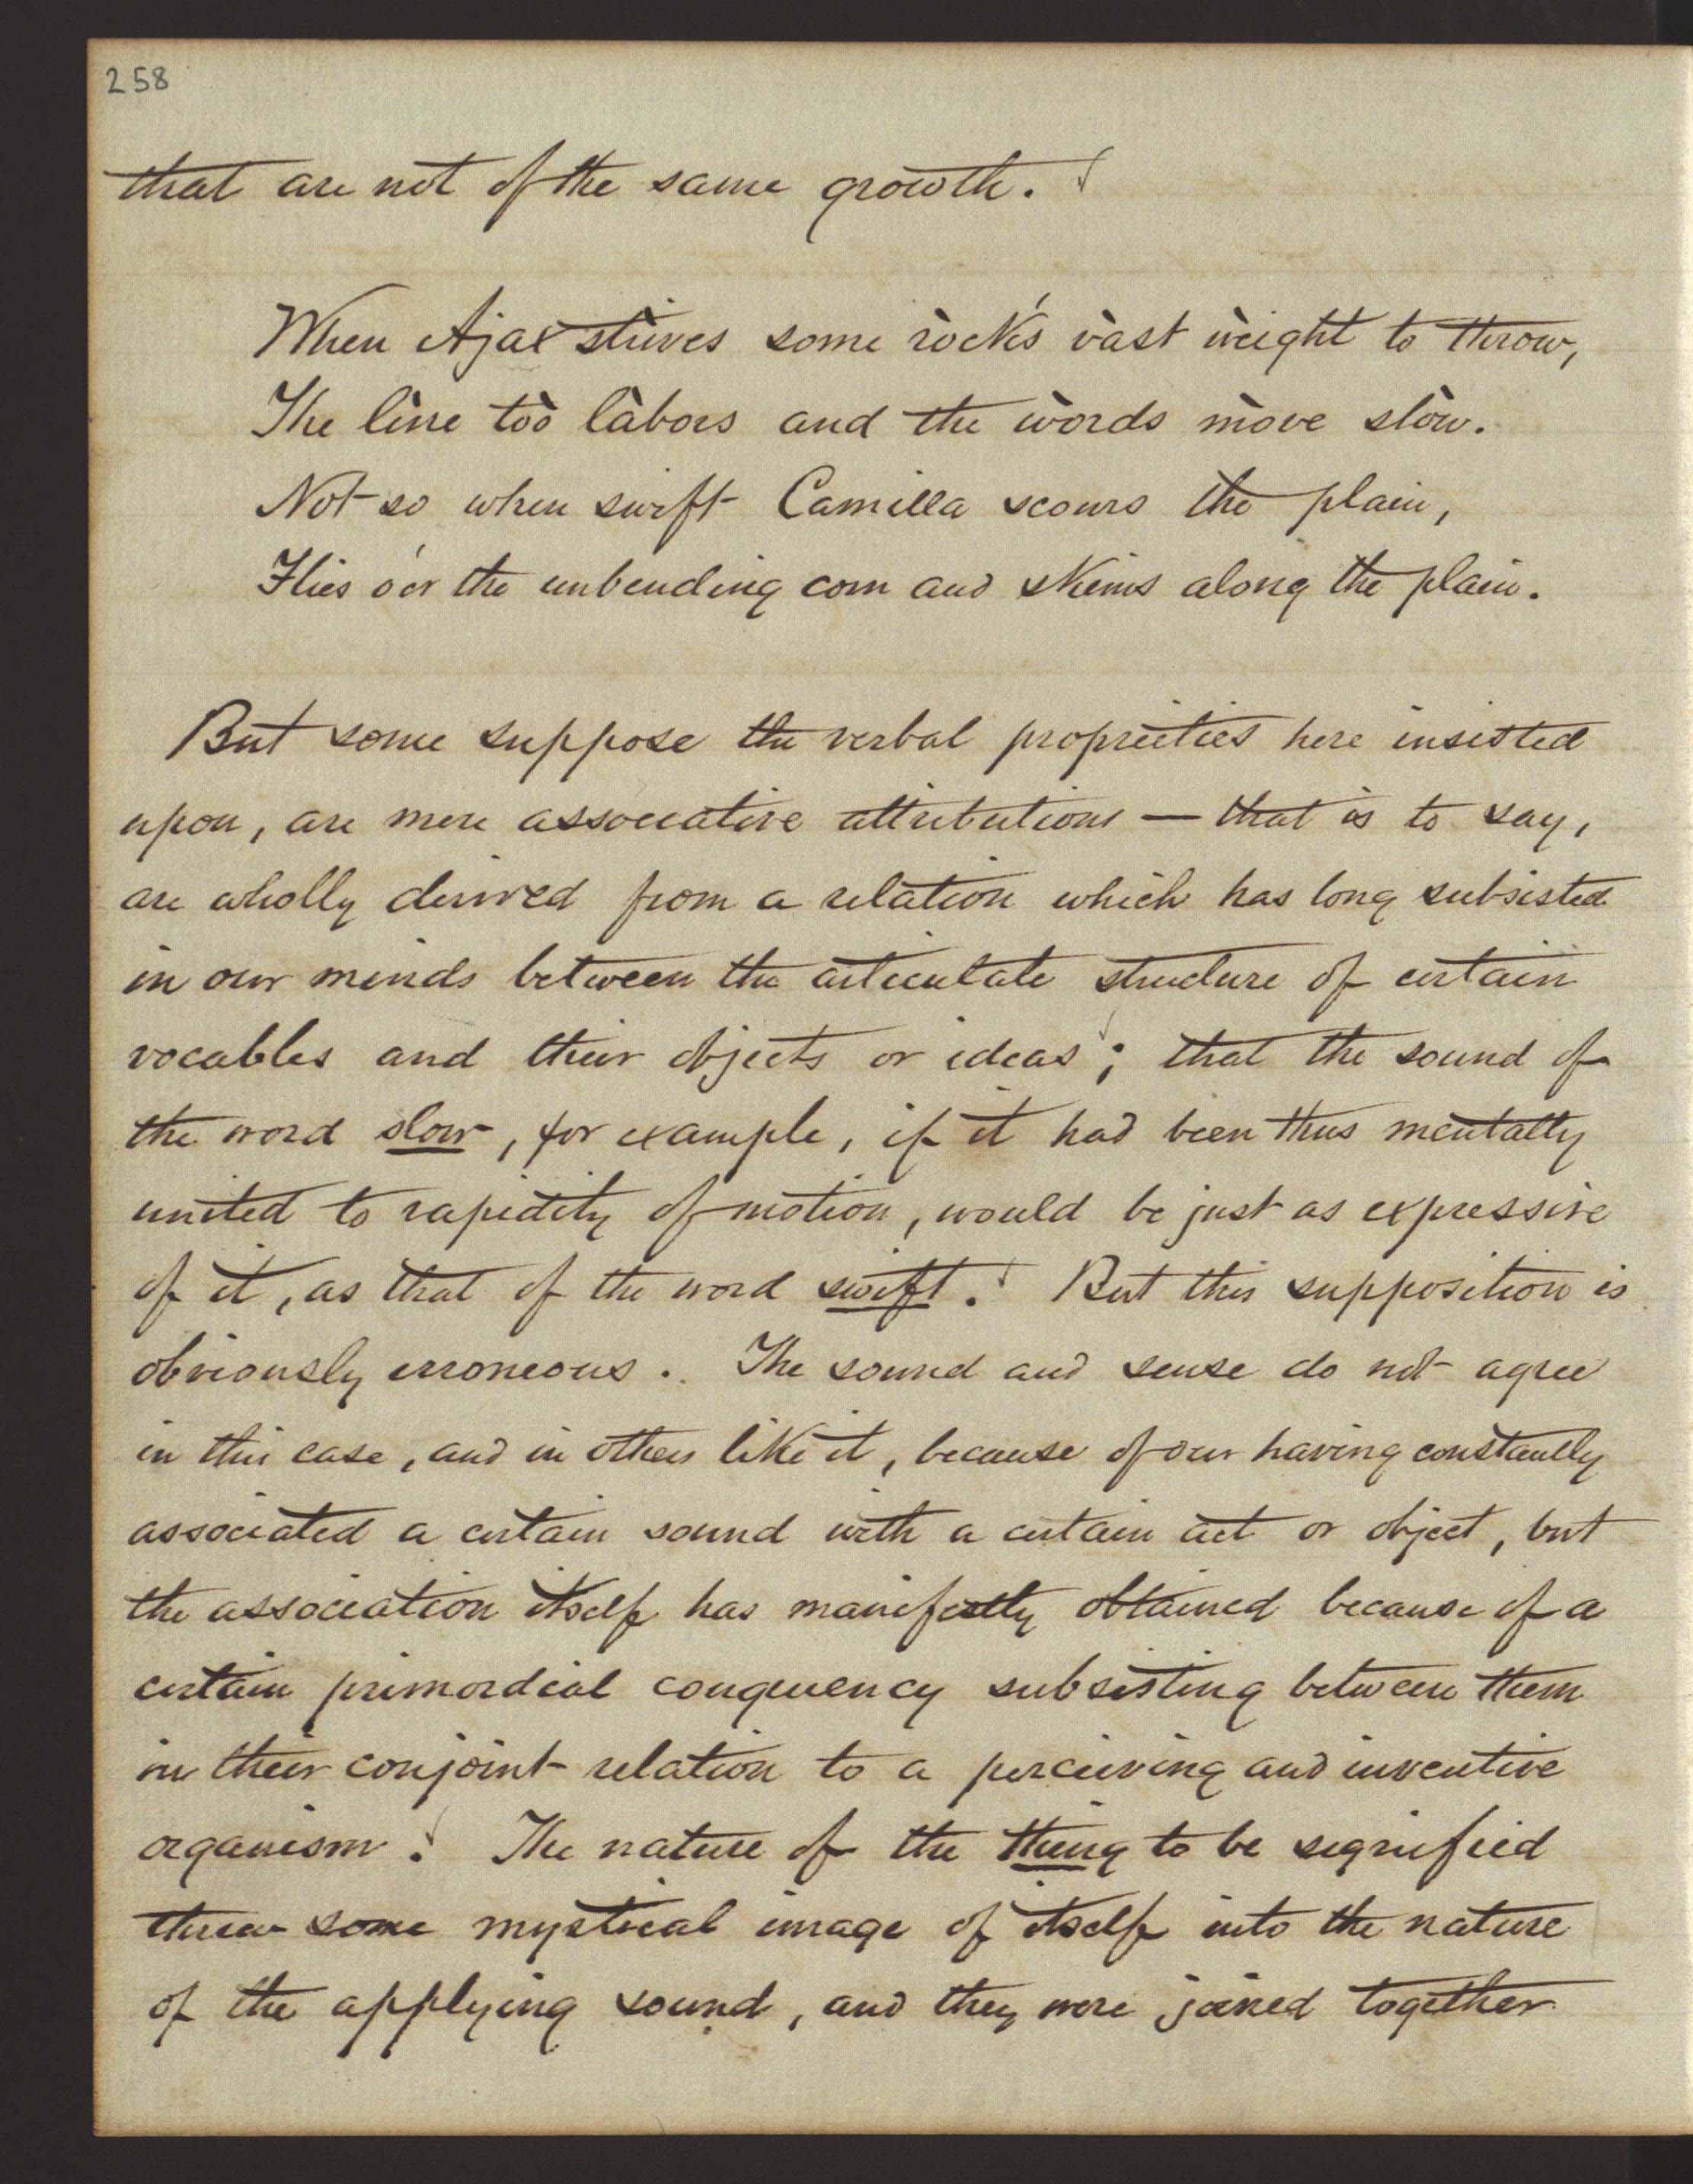 258
that are not of the same growth.
When Ajax strives some rock's vàst wèight to throw,
The lìne toò làbors and the wòrds mòve slòw.
Not so when swift Camilla scours the plain,
Flies o'er the unbending corn and skims along the plain.
But some suppose the verbal proprieties here insisted
upon, are mere associative attributions — that is to say,
are wholly derived from a relation which has long subsisted
in our minds between the articulate structure of certain
vocables and their objects or ideas; that the sound of
the word slow, for example, if it had been thus mentally
united to rapidity of motion, would be just as expressive
of it, as that of the word swift. But this supposition is
obviously erroneous. The sound and sense do not agree
in this case, and in others like it, because of our having constantly
associated a certain sound with a certain act or object, but
the association itself has manifestly obtained because of a
certain primordial congruency subsisting between them
in their conjoint relation to a perceiving and inventive
organism. The nature of the thing to be signified
threw some mystical image of itself into the nature
of the applying sound, and they were joined together